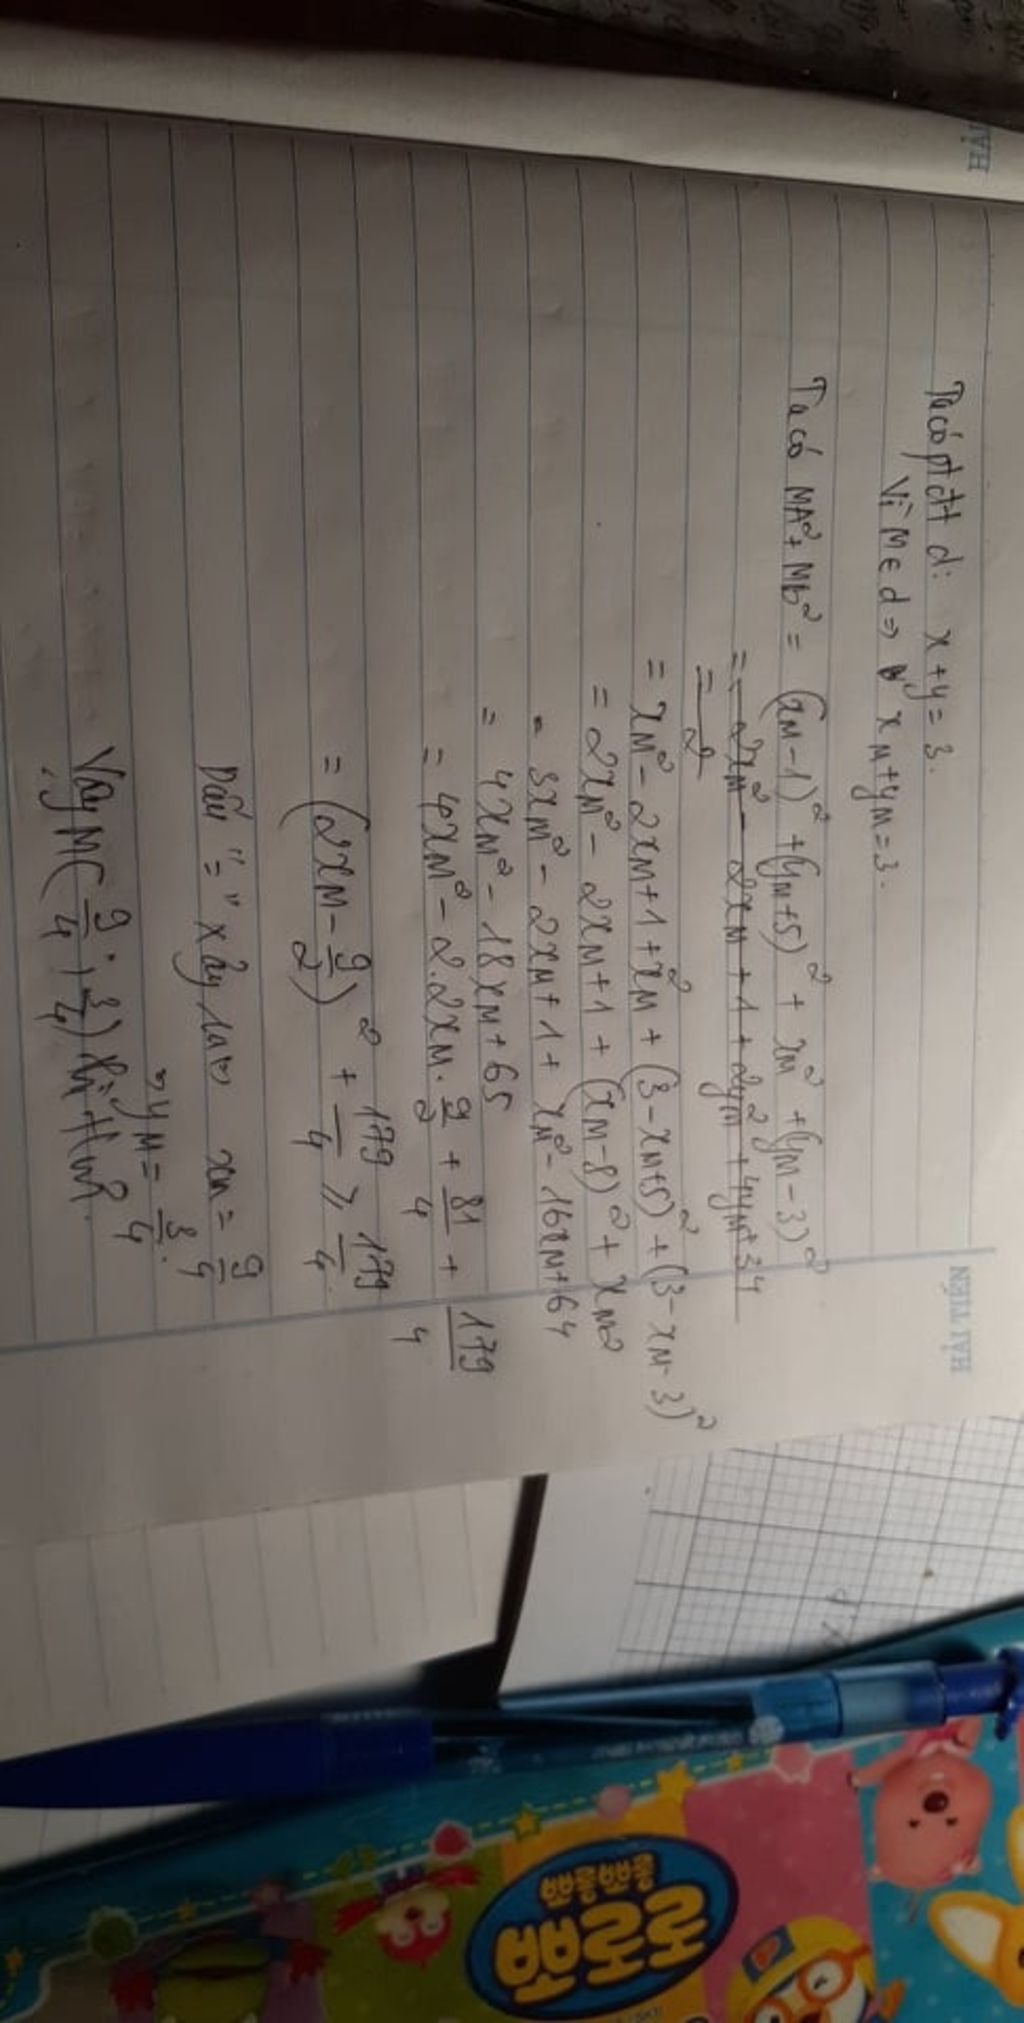 HẢI TIẾN
Ta có pt đt d: x+y=3.
Vì M ∈ d => x_M+y_M=3.
Ta có MA²+Mb² = (x_M-1)²+(y_M+5)²+x_M²+(y_M-3)²
= 2x_M²-2x_M+1+2y_M²+4y_M+34
= 2
= x_M²-2x_M+1+x_M²+(3-x_M+5)²+(3-x_M-3)²
= 2x_M²-2x_M+1+(x_M-8)²+x_M²
= 3x_M²-2x_M+1+x_M²-16x_M+64
= 4x_M²-18x_M+65
= 4x_M²-2.2x_M.9/2+81/4+179/4
= (2x_M-9/2)²+179/4 ≥ 179/4
Dấu "=" xảy ra <=> x_M=9/4
=> y_M=3/4.
Vậy M(9/4;3/4) thì thm².
뽀롱뽀롱
뽀로로